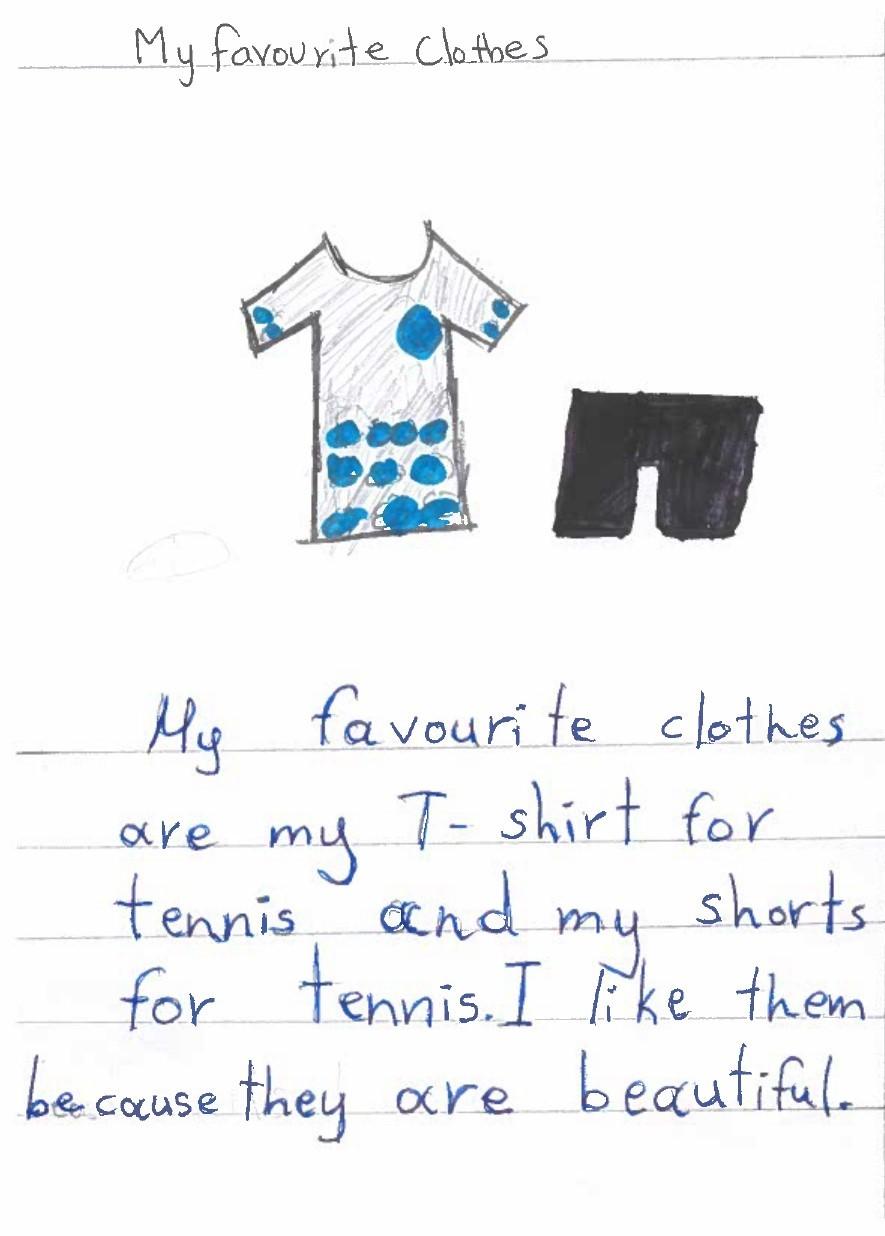 My favourite Clothes
My favourite clothes
are my T-shirt for
tennis and my shorts
for tennis. I like them
because they are beautiful.